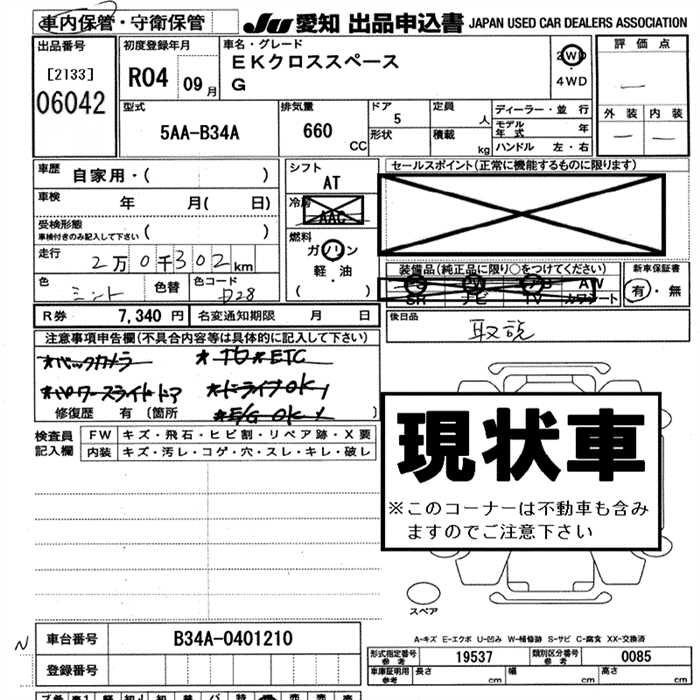 車内保管・守衛保管
JU 愛知 出品申込書 JAPAN USED CAR DEALERS ASSOCIATION
出品番号
[2133]
06042
初度登録年月
R04 09月
車名・グレード
EKクロススペース
G
2WD
4WD
評価点
外装 内装
型式
5AA-B34A
排気量
660 CC
ドア 5
形状
定員 人
積載 kg
ディーラー・並行
モデル年式 年
ハンドル 左・右
車歴 自家用・( )
車検 年 月( 日)
受検形態
車検付きのみ記入して下さい ( )
走行 2万0千302km
色 ミント
色替
色コード
シフト
AT
冷房
AAC
燃料
ガソリン
軽・油
( )
セールスポイント(正常に機能するものに限ります)
装備品(純正品に限り○をつけてください)
AW
SR ナビ TV カワシート
新車保証書
有・無
R券 7,340円 名変通知期限 月 日
後日品
取説
注意事項申告欄(不具合内容等は具体的に記入して下さい)
*バックカメラ *TG*ETC
*パワースライドドア *ドライブOK
*E/G OK
修復歴 有 (箇所 )
検査員記入欄
FW キズ・飛石・ヒビ割・リペア跡・X要
内装 キズ・汚レ・コゲ・穴・スレ・キレ・破レ
現状車
※このコーナーは不動車も含み
ますのでご注意下さい
スペア
A-キズ E-エクボ U-凹み W-補修跡 S-サビ C-腐食 XX-交換済
N
車台番号 B34A-0401210
登録番号
形式指定番号 参考 19537
類別区分番号 参考 0085
車庫証明用 参考 長さ cm 幅 cm 高さ cm